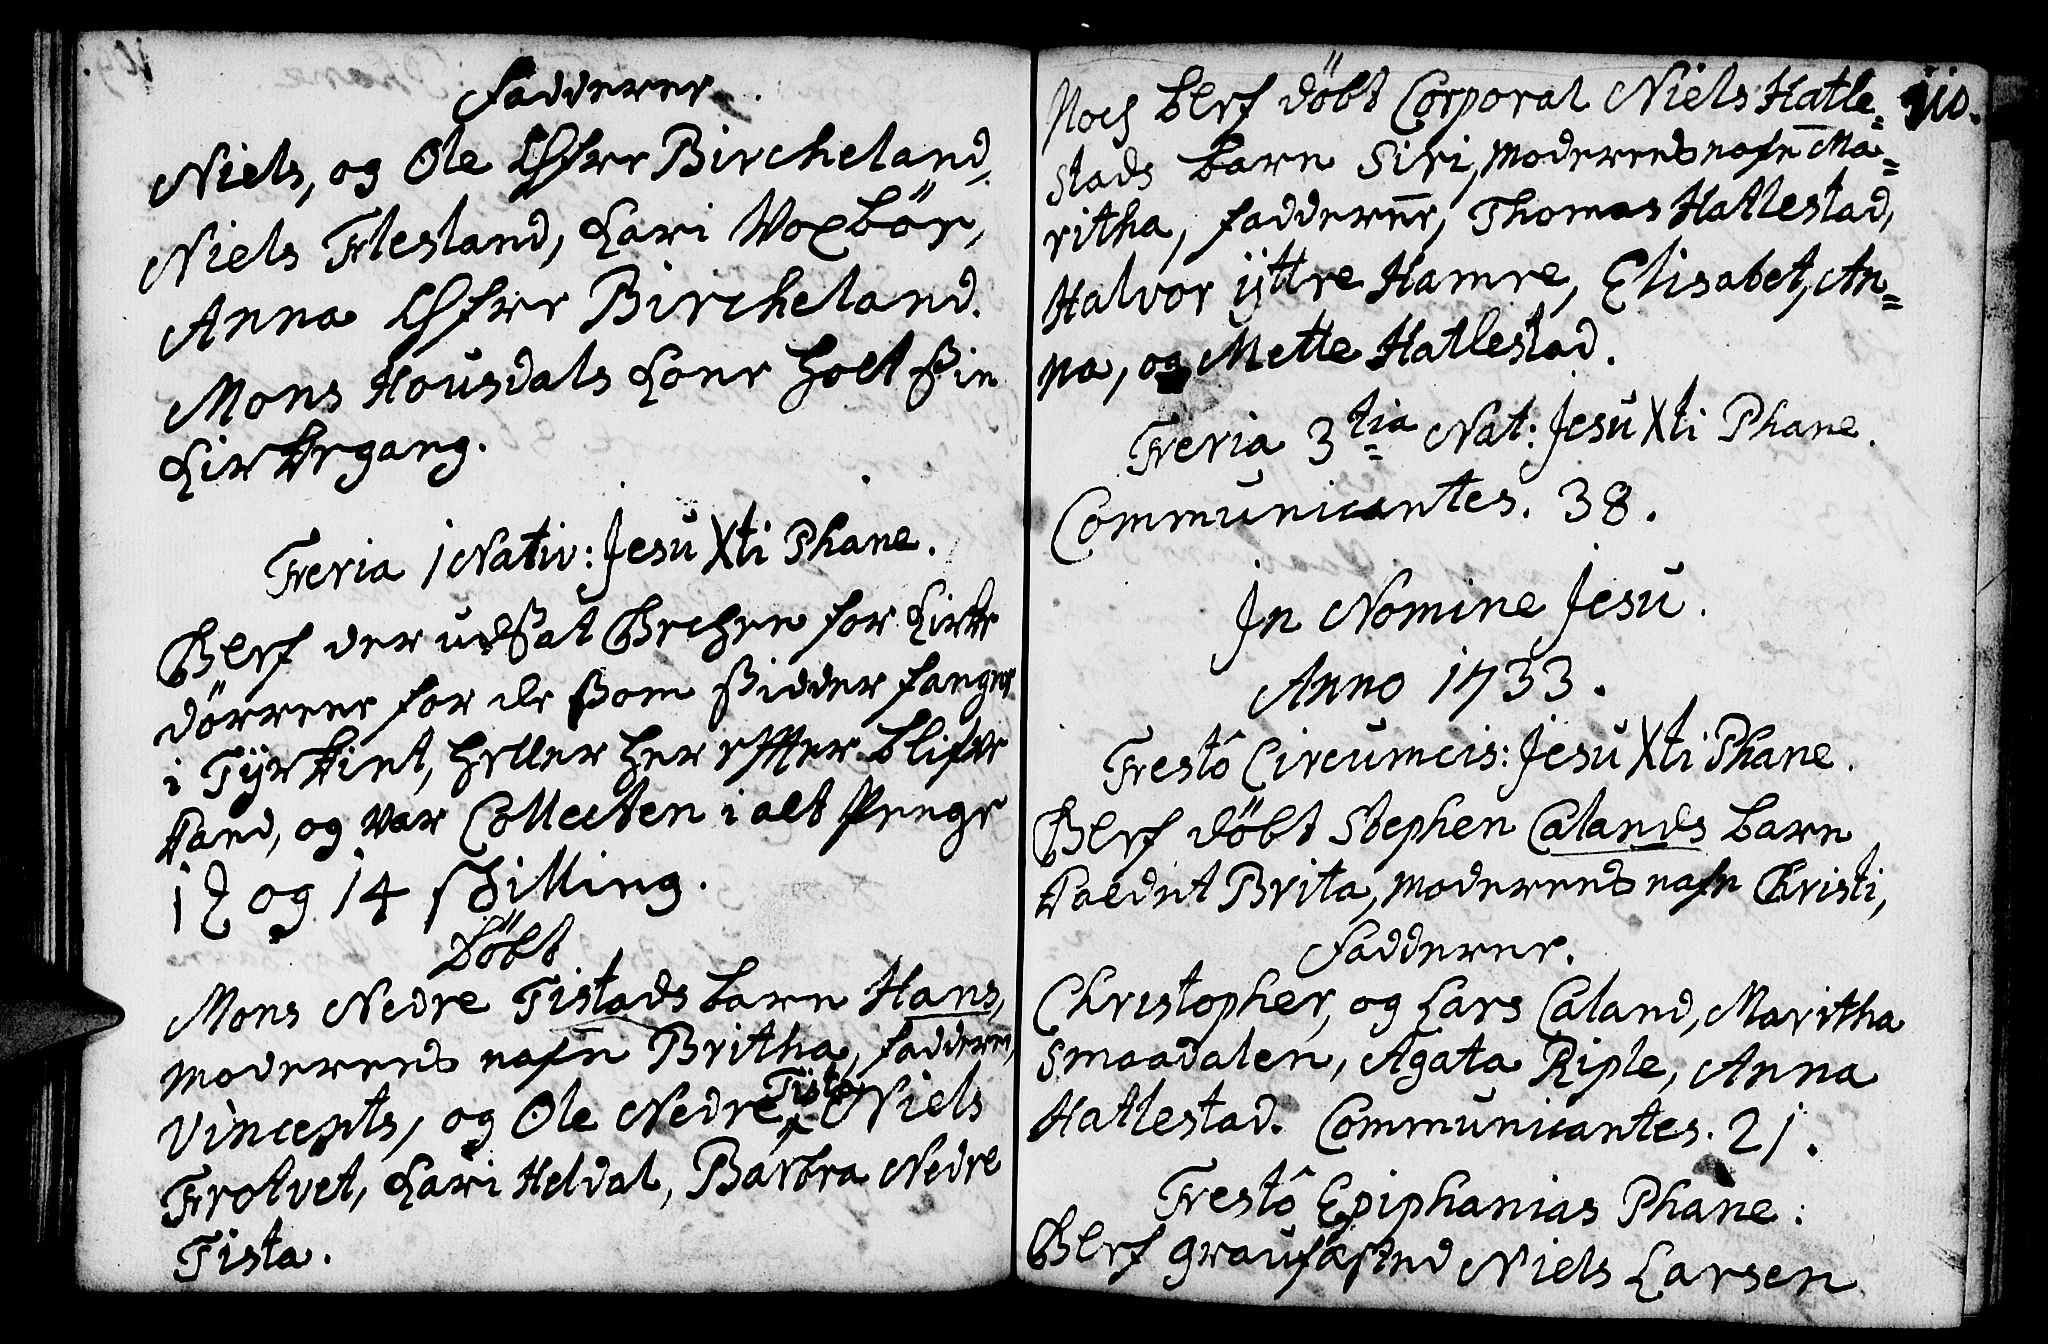 Fadderne.
Niels, og Ole Øfre Bircheland,
Niels Flesland, Kari Woxbör,
Anna Øfre Bircheland.
Mons Housdals Kone holt sin
Kirkegang.
Feria 1 Nativ: Jesu Xti Phane.
Blef der udsat Becken for Kirke
dörrene for de som sidder fangne
i Tyrkiet, heller her effter blifve
kand, og var Collecten i alt Penge
1 og 14 skilling.
Döbt
Mons Nedre Tistads barn Hans,
moderens nafn Britha, faddere,
Vincents, og Ole Nedre Tista Niels
Frotvet, Kari Heldal, Barbra Nedre
Tista.
110.
Noch blef döbt Corporal Niels Hatle=
stads barn Siri, moderens nafn Ma=
ritha, fadderne, Thomas Hatlestad,
Halvor ÿttre Hamre, Elisabet, An=
na, og Mette Hatlestad.
Feria 3tia Nat: Jesu Xti Phane.
Communicantes. 38.
In Nomine Jesu.
Anno 1733.
Festô Circumcis: Jesu Xti Phane.
Blef döbt Stephen Calands barn
kaldet Brita, moderens nafn Christi,
Fadderne.
Christopher, og Lars Caland, Maritha
Smaadalen, Agata Riple, Anna
Hatlestad. Communicantes. 21.
Festô Epiphanias Phane:
Blef graufæsted Niels Larsen